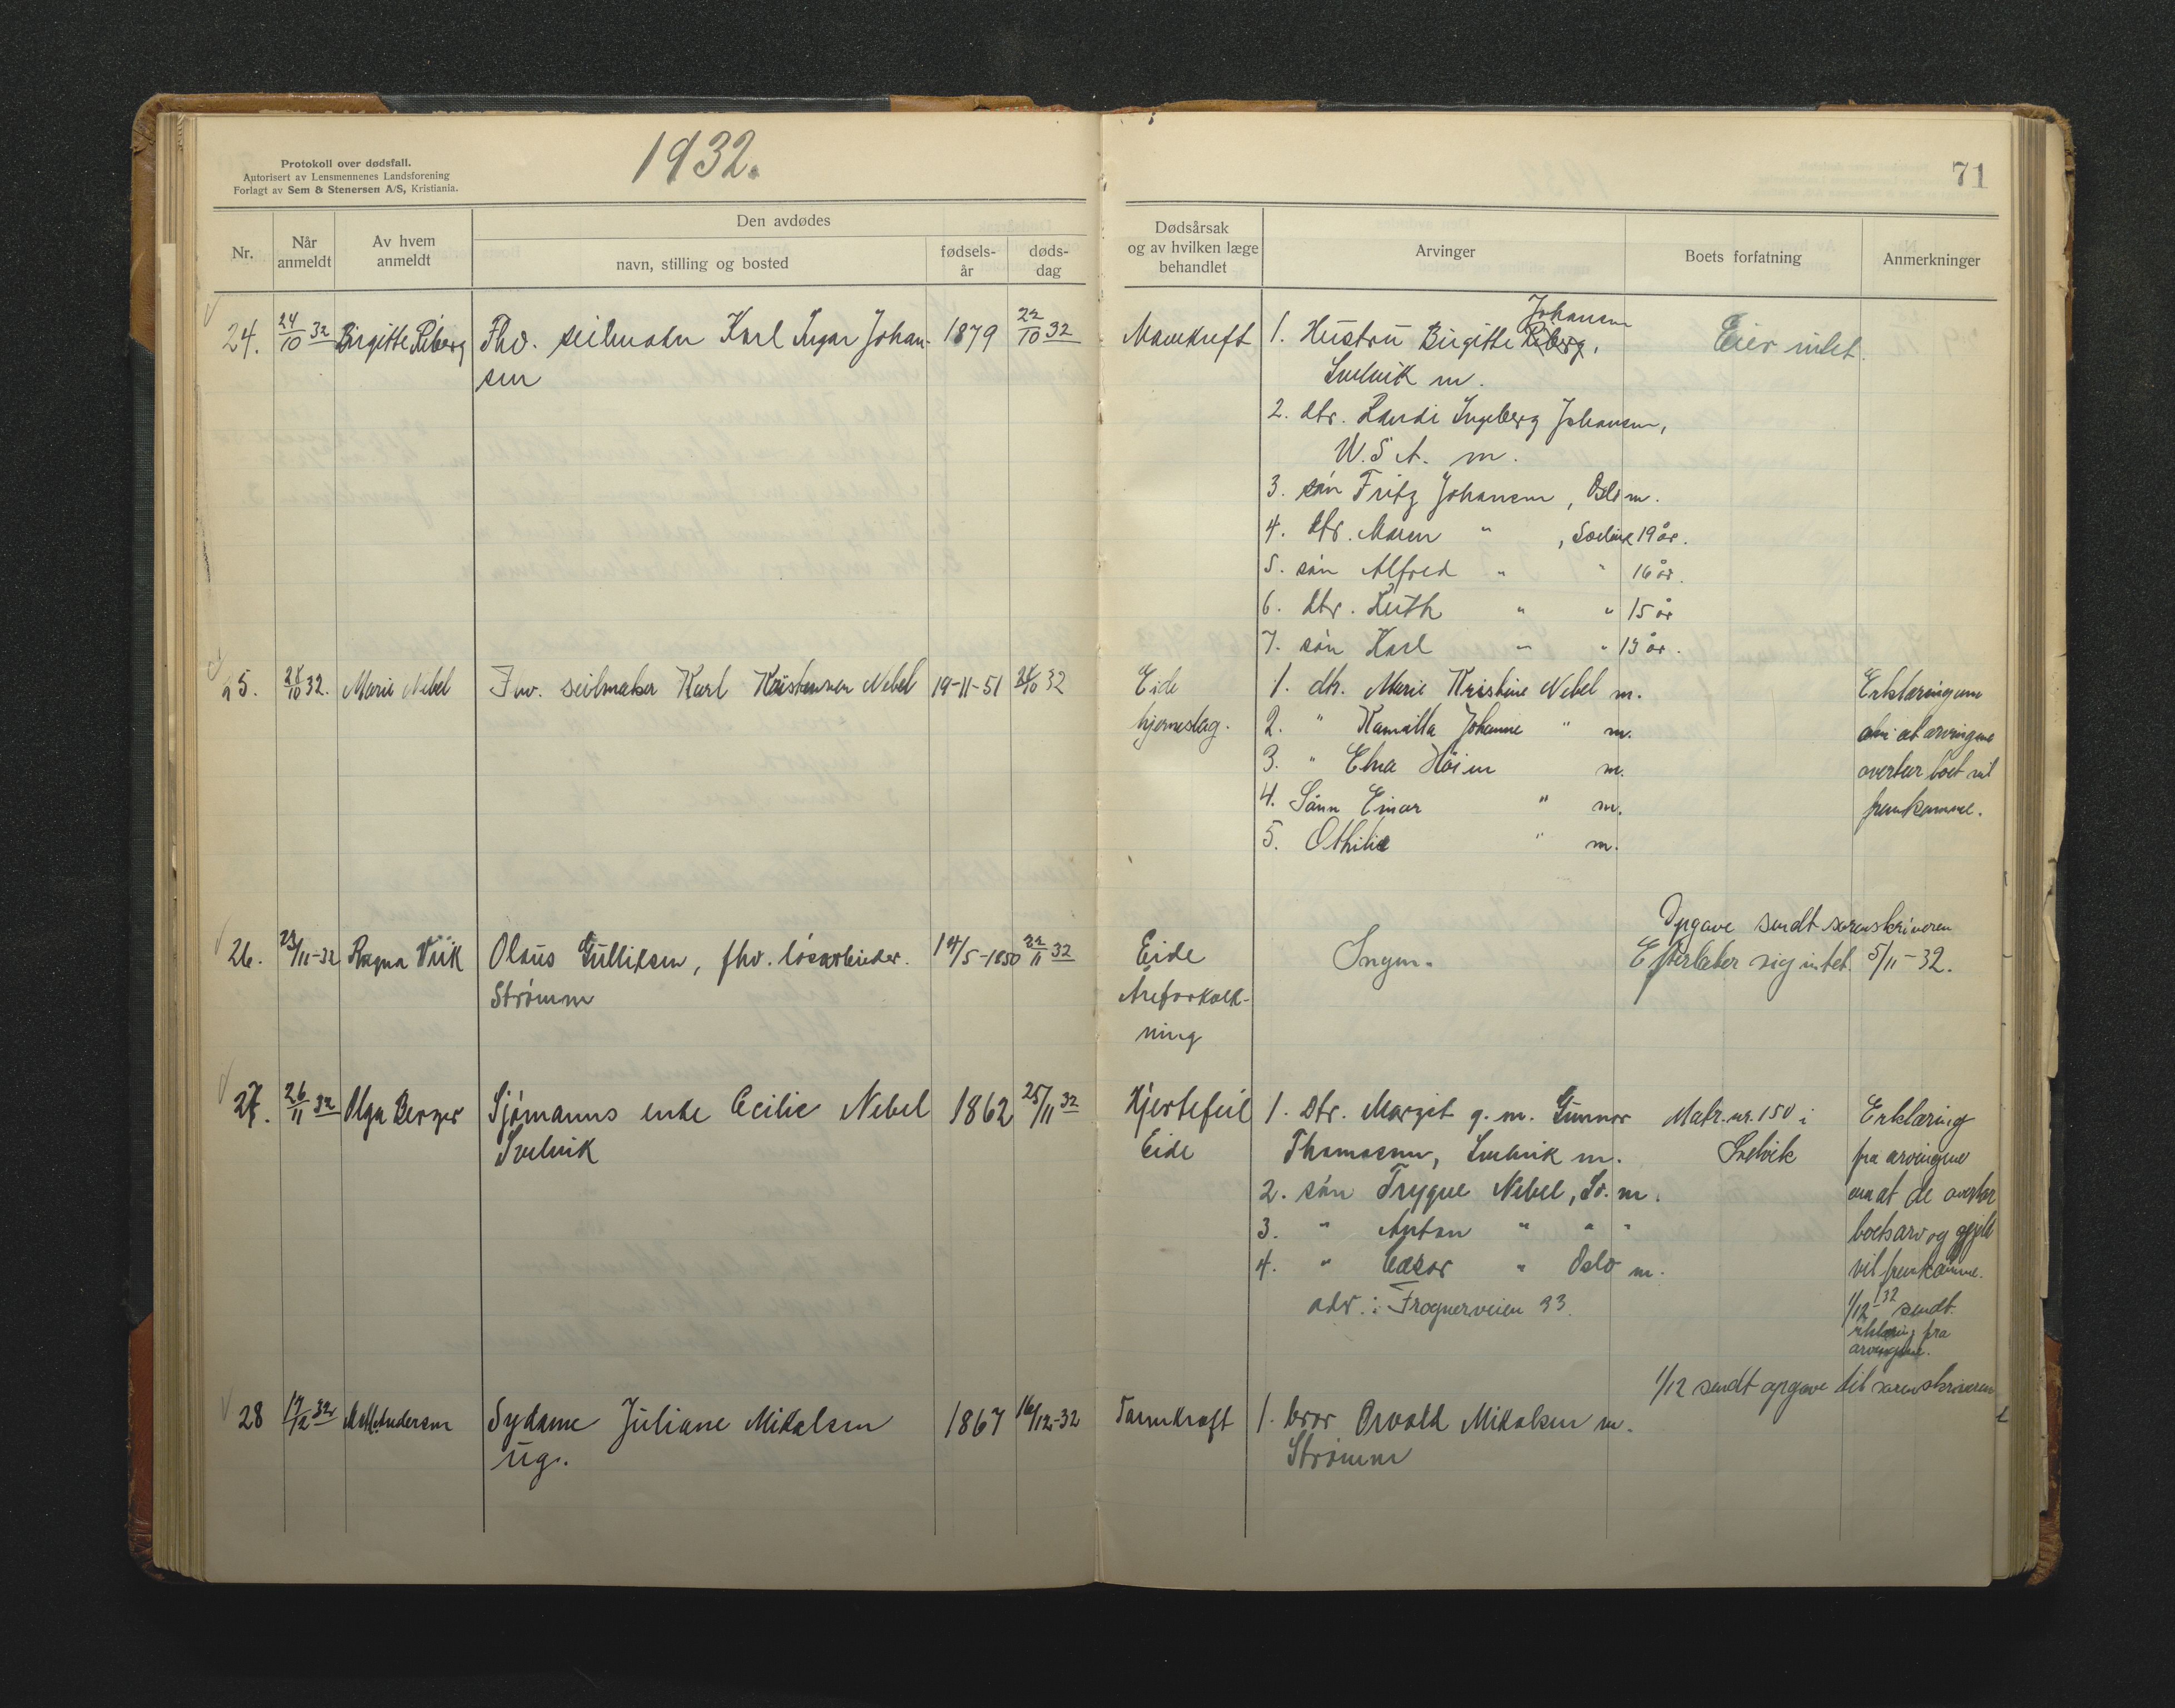 Protokoll over dødsfall.
Autorisert av Lensmennenes Landsforening
Forlagt av Sem & Stenersen A/S, Kristiania.
1932.
71
Nr.
Når anmeldt
Av hvem anmeldt
Den avdødes
navn, stilling og bosted
fødsels-år
døds-dag
Dødsårsak og av hvilken læge behandlet
Arvinger
Boets forfatning
Anmerkninger
24. 24/10 32 Birgitte Riberg Fhv. Karl Ingar Johan- 1879 22/10 32 Mavekreft 1. Hustru Birgitte Riberg, Johansen Eier intet.
sen Svelvik m.
2. dtr. Randi Ingeberg Johansen,
U.S.A. m.
3. sön Fritz Johansen, Oslo m.
4. dtr. Maren " , Svelvik 19 år.
5. sön Alfred " " 16 år.
6. dtr. Ruth " " 15 år
7. sön Karl " " 13 år.
25. 28/10 32. Marie Nebel Fhv. seilmaker Karl Kristensen Nebel 19-11-51 32 Eide 1. dtr. Marie Kristine Nebel m. Erklæring om
hjerneslag. 2. " Kamilla Johanne " m. at arvingene
3. " Elna Höien m. overtar boet vil
4. Sönn Einar " m. fremkomme.
5. Othilie " m.
Opgave sendt sorenskriveren
26. 23/11-32 Ragna Viik Olaus Gulliksen, fhv. lösarbeider. 14/5-1850 22/11 32 Eide Ingen. Efterlater sig intet. 5/11-32.
Strömm Åreforkalk-
ning
27. 26/11 32 Olga Berger Sjömanns enke Cecilie Nebel 1862 25/11 32 Hjertefeil 1. Dtr. Margit g.m. Gunnar Matr.nr. 150 i Erklæring
Svelvik Eide Thomassen, Svelvik m. Svelvik fra arvingene
2. sön Trygve Nebel, Sv. m. om at de overtar
3. " Anton " " " boets arv og gjeld
4. " Cæsar " Oslo m. vil fremkomme.
adr.: Frognerveien 33. 1/12-32 sendt
erklæring fra
arvingene.
1/12 sendt opgave til sorenskriveren
28 17/12 32 Andersen Sydame Juliane Mikalsen 1867 16/12-32 Tarmkræft 1. bror Osvald Mikalsen m.
ug. Strömm